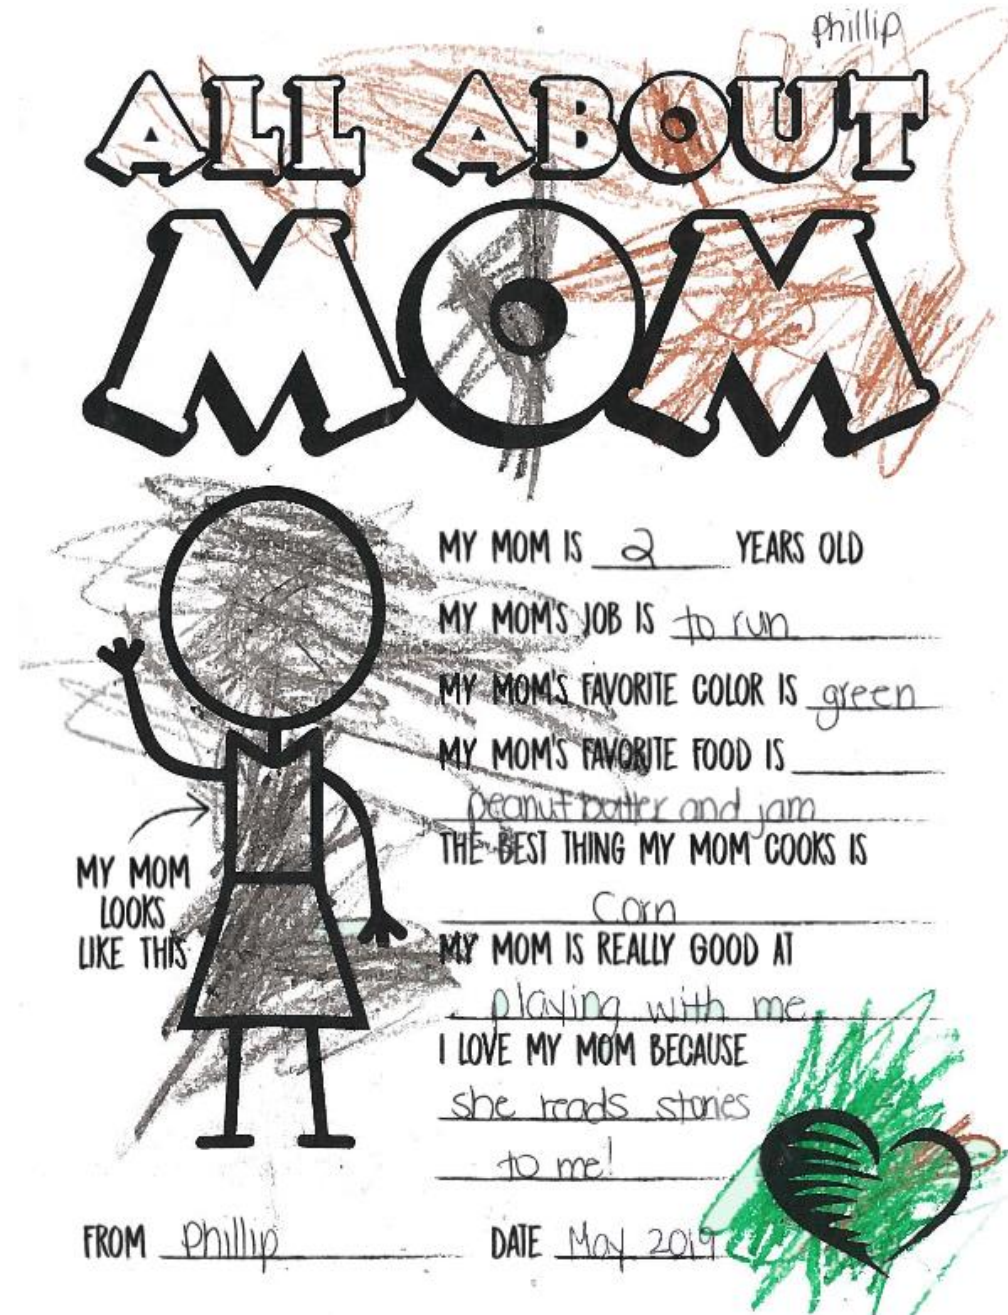 Phillip
ALL ABOUT
MOM
MY MOM IS 2 YEARS OLD
MY MOM'S JOB IS to run
MY MOM'S FAVORITE COLOR IS green
MY MOM'S FAVORITE FOOD IS
peanut butter and jam
THE BEST THING MY MOM COOKS IS
Corn
MY MOM IS REALLY GOOD AT
playing with me
I LOVE MY MOM BECAUSE
she reads stories
to me!
MY MOM
LOOKS
LIKE THIS
FROM Phillip DATE May 2019